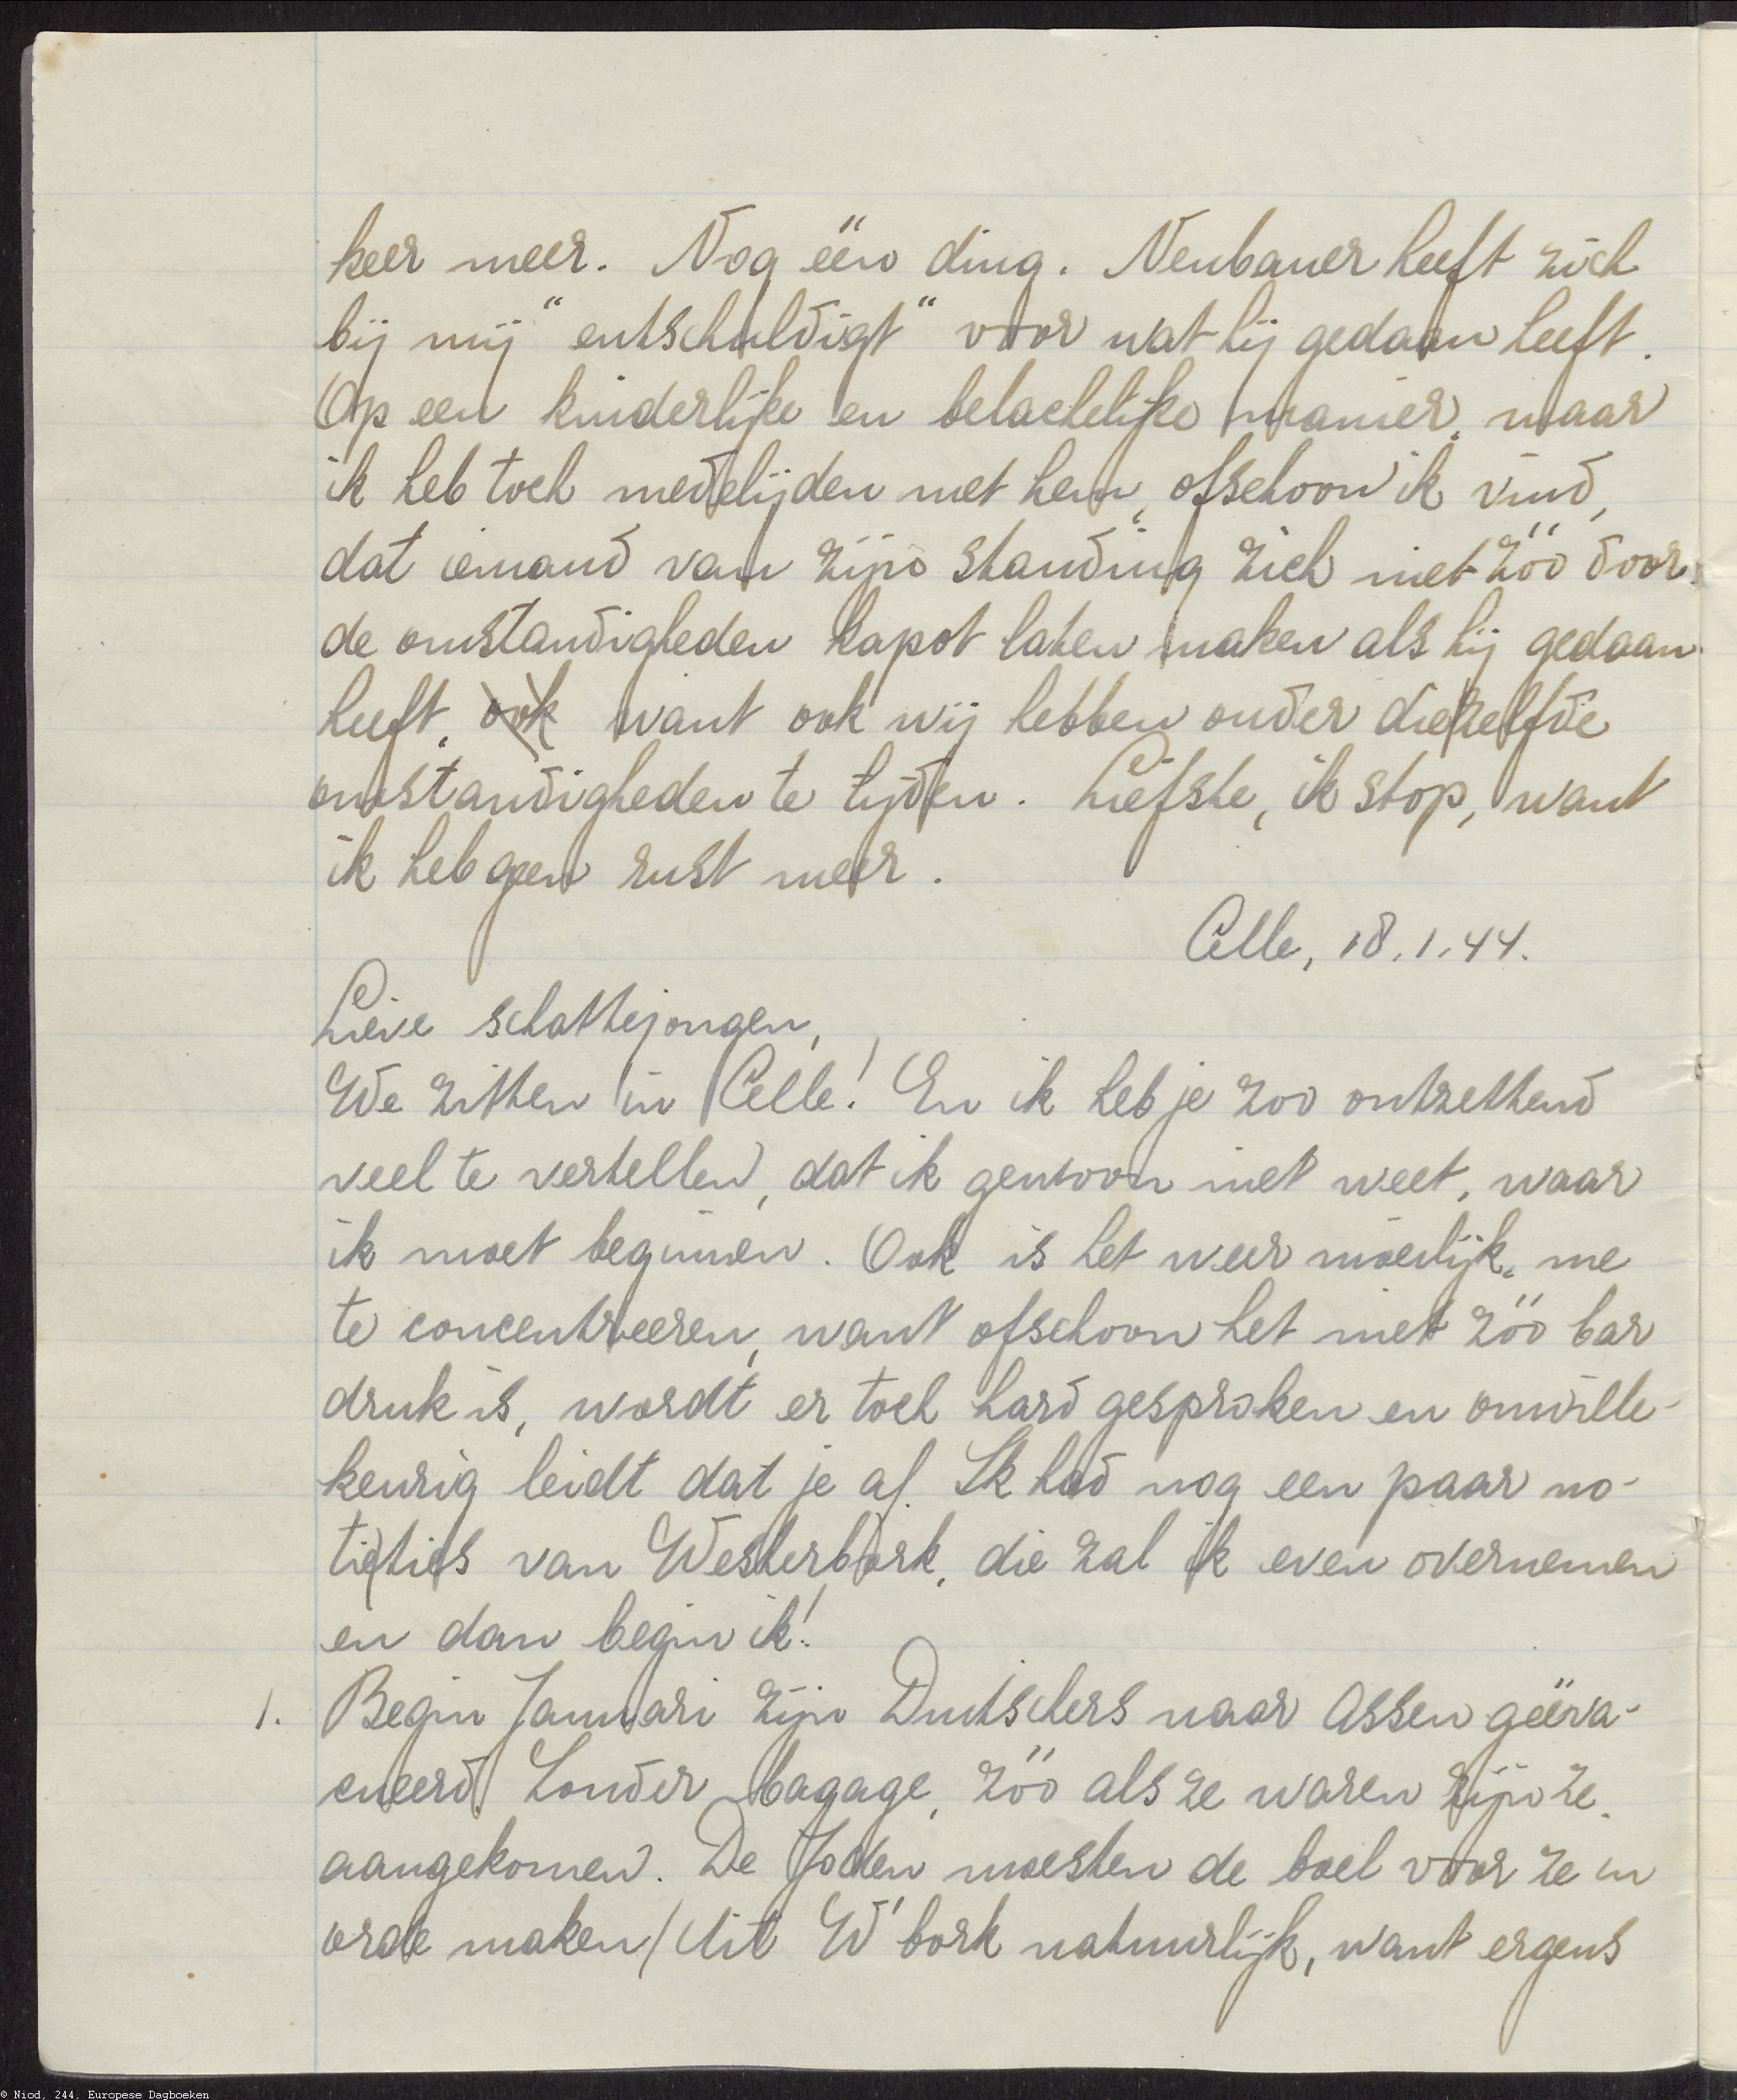 keer meer. Nog één ding. Neubauer heeft zich
bij mij "entschuldigt" voor wat hij gedaan heeft.
Op een kinderlijke en belachelijke manier, maar
ik heb toch medelijden met hem, ofschoon ik vind,
dat iemand van zijn standing zich niet zóó door
de omstandigheden kapot laten maken als hij gedaan
heeft, ook want ook wij hebben onder diezelfde
omstandigheden te lijden. Liefste, ik stop, want
ik heb geen rust meer.
Celle, 18.1.44.
Lieve schattejongen,
We zitten in Celle! En ik heb je zoo ontzettend
veel te vertellen, dat ik gewoon niet weet, waar
ik moet beginnen. Ook is het weer moeilijk, me
te concentreeren, want ofschoon het niet zóó bar
druk is, wordt er toch hard gesproken en onwille-
keurig leidt dat je af. Ik had nog een paar no-
tities van Westerbork, die zal ik even overnemen
en dan begin ik!
1. Begin Januari zijn Duitschers naar Assen geëva-
cueerd. Zonder bagage, zóó als ze waren zijn ze
aangekomen. De Joden moesten de boel voor ze in
orde maken/Uit W'bork natuurlijk, want ergens
© Niod, 244, Europese Dagboeken